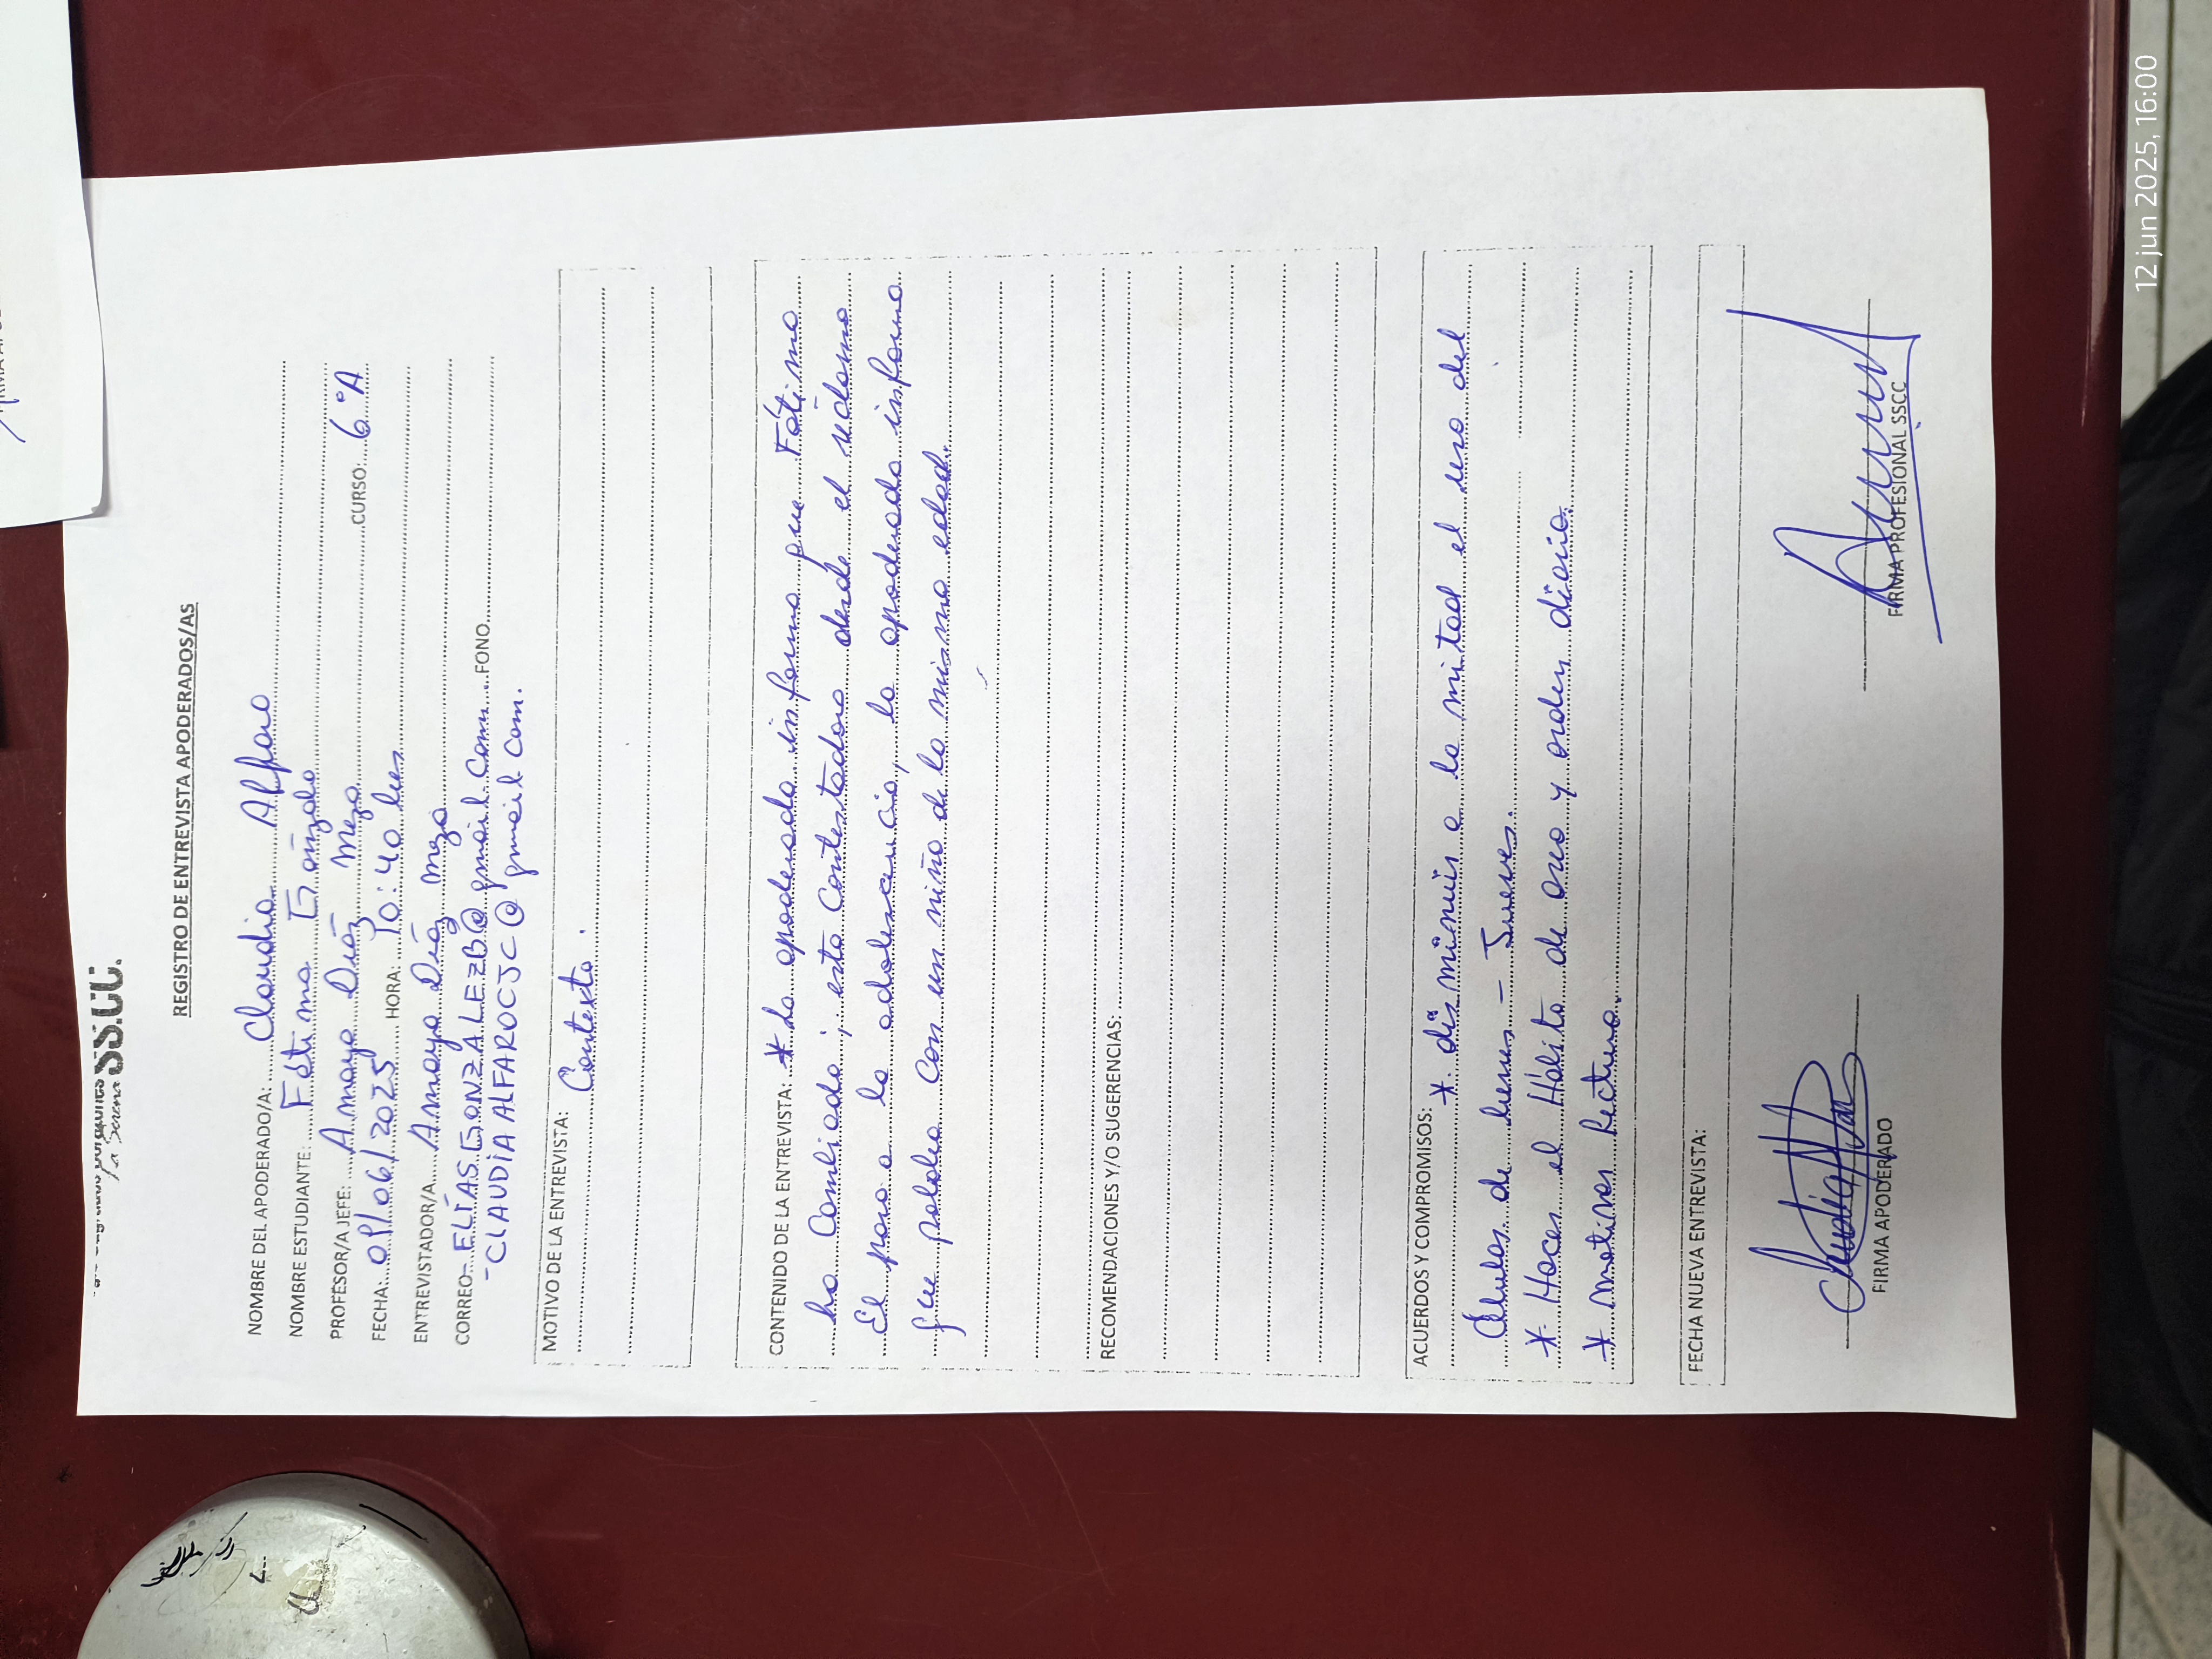 La Serena SS.CC.
REGISTRO DE ENTREVISTA APODERADOS/AS
NOMBRE DEL APODERADO/A: Claudia Alfaro
NOMBRE ESTUDIANTE: Fátima González
PROFESOR/A JEFE: Amaya Díaz Meza
FECHA: 09/06/2025 HORA: 10:40 hrs CURSO: 6°A
ENTREVISTADOR/A Amaya Díaz Meza
CORREO - ELÍAS.GONZALEZB@gmail.com FONO
- CLAUDIA ALFAROCJC@gmail com.
MOTIVO DE LA ENTREVISTA: Contexto.
CONTENIDO DE LA ENTREVISTA: * La apoderada informa que Fátima
ha cambiado; esta contestadora desde el
El paso a la adolescencia, la apoderada informa
que pololea con un niño de la misma edad.
RECOMENDACIONES Y/O SUGERENCIAS:
ACUERDOS Y COMPROMISOS: * disminuir a la mitad el uso del
Celular de lunes - Jueves.
* Hacer el Hábito de aseo y orden diario.
* motivar lectura.
FECHA NUEVA ENTREVISTA:
FIRMA APODERADO
FIRMA PROFESIONAL SSCC
12 jun 2025, 16:00